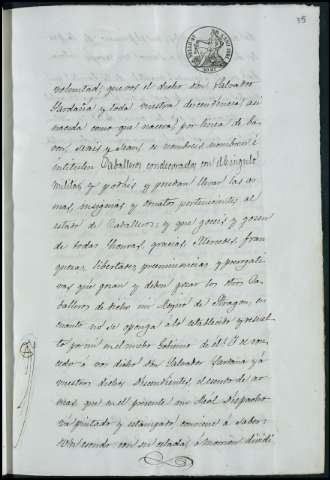 35
voluntad, que vos el dicho don Salvador
Sardaña y toda vuestra decendencia, asi
nacida como que nacera, por linea de ba-
ron, seais y sean, se nombreis nombren é
instituten Caballeros condecorados con el Cingulo
militar, y podais y puedan llevar las ar-
mas, insignias y ornatos pertenecientes al
estado de Caballeros; y que goceis y gocen
de todas Honras, gracias, Mercedes, fran-
quezas, libertades, preeminencias y prerogati-
vas que gozan y deben gozar los otros Ca-
balleros de dicho mi Reyno de Aragon, en
cuanto no se oponga á lo establecido y resuel-
to por mi en el nuebo Gobierno de él. Os con-
cedo á vos dicho Don Salvador Sardaña y á
vuestros dichos Decendientes, el escudo de ar-
mas que en el presente mi Real Despacho
va pintado y estampado, conviene á saber:
Un escudo con su celada, ó morrion dividi